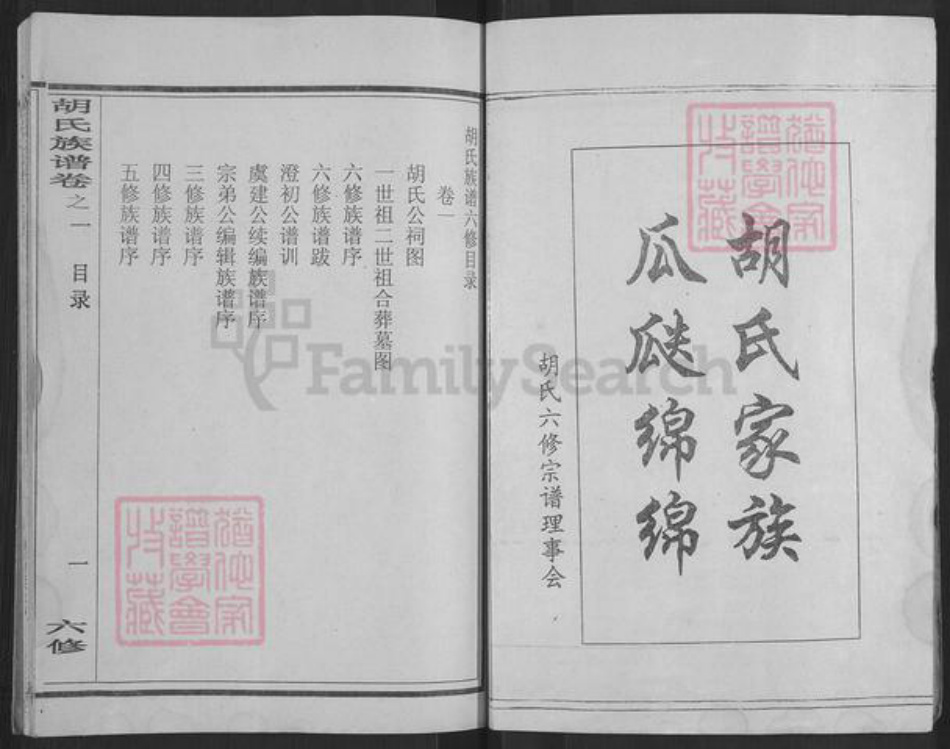 胡氏家族
瓜瓞绵绵
胡氏六修宗谱理事会
胡氏族谱六修目录
卷一
胡氏公祠图
一世祖二世祖合葬墓图
六修族谱序
六修族谱跋
澄初公谱训
虞建公续编族谱序
宗弟公编辑族谱序
三修族谱序
四修族谱序
五修族谱序
胡氏族谱卷之一
目录
一
六修
猶他家
譜學會
收藏
猶他家
譜學會
收藏
FamilySearch